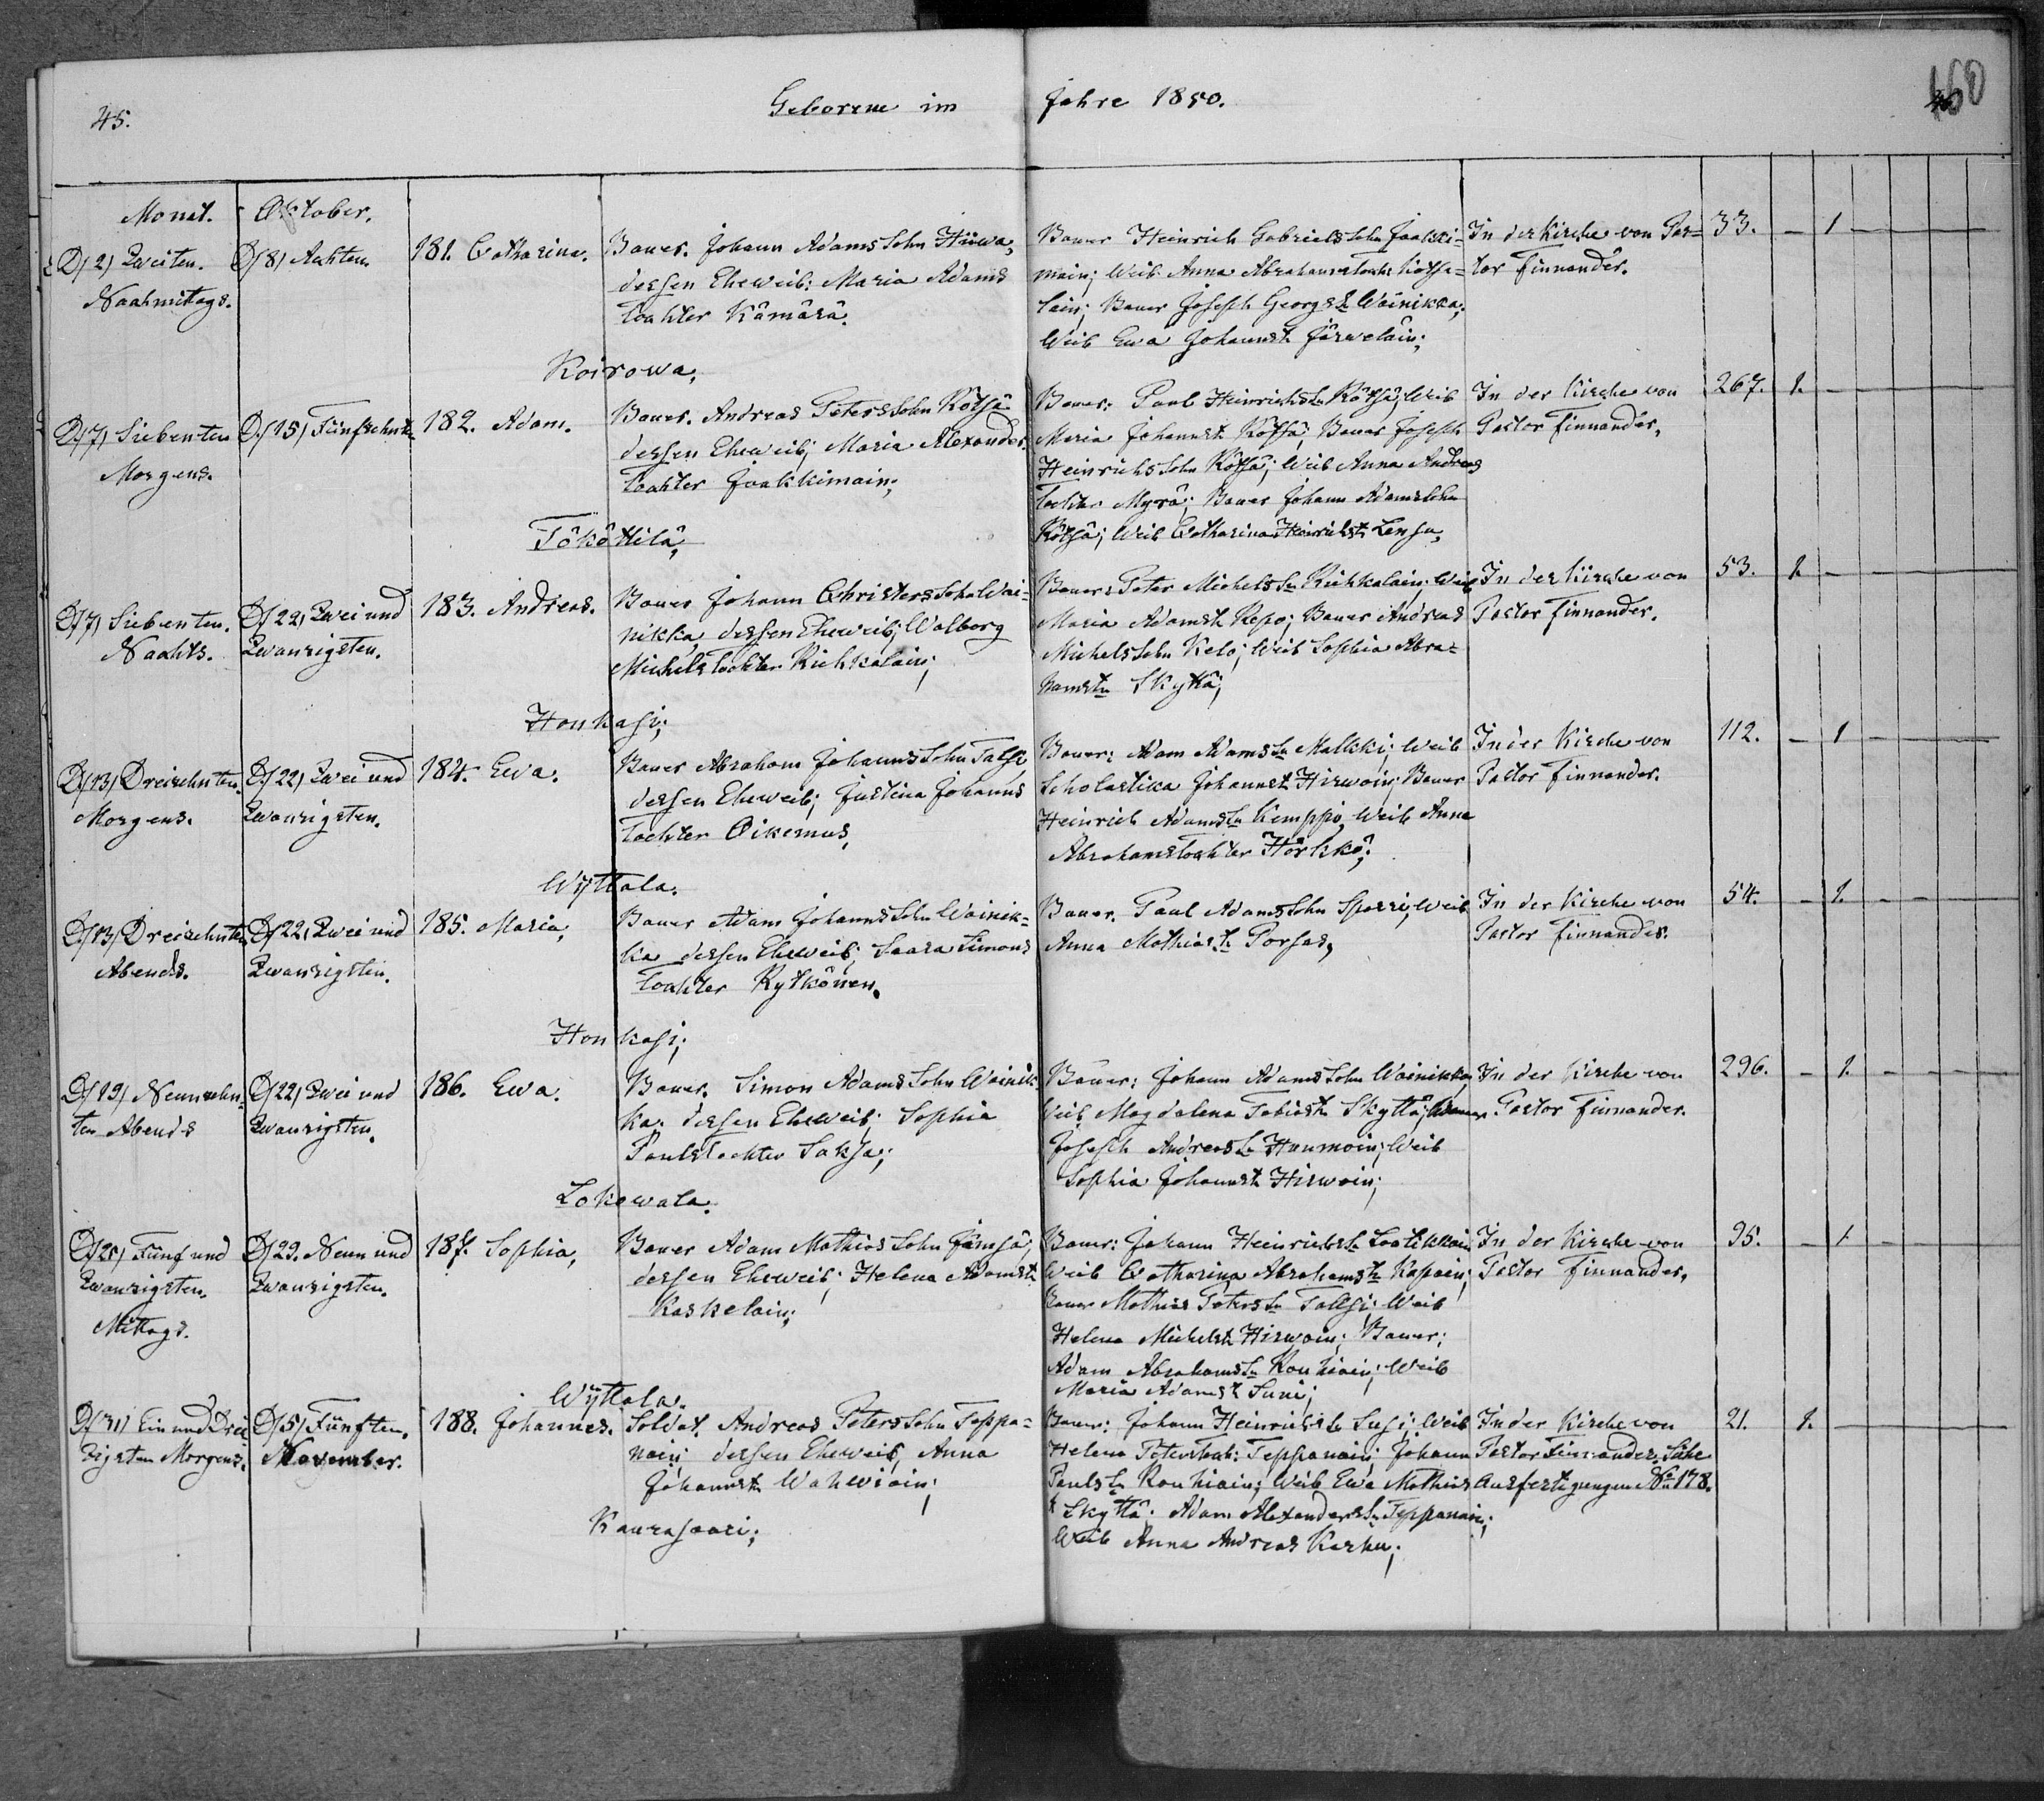 45.
Geborene im Jahre 1850.
160
Monat. Oktober.
D/2) Zweiten. D/8) Achten. 181. Catharina. Bauer. Johann Adams Sohn Hüwa,
Nachmittags. dessen Eheweib: Maria Adams
Tochter Kämärä.
Bauer Heinrich Gabriels Sohn Jaakki-
main; Weib Anna Abrahams Toch:
lain; Bauer Joseph Georgs S. Wainikka;
Weib Ewa Johannst. Järweläin;
In der Kirche von Pas-
tor Finnander.
33. – 1 –
Koirowa,
D/7) Siebenten D/15) Fünfzehnt. 182. Adam. Bauer. Andreas Peters Sohn Kötsä
Morgens. dessen Eheweib; Maria Alexander
Tochter Jaakkimain;
Bauer: Paul Heinrichs Sn Kötsä; Weib
Maria Johannst. Kötsä; Bauer Joseph
Heinrichs Sohn Kötsä; Weib Anna Andreas
Tochter Myrä; Bauer Johann Adams Sohn
Kötsä; Weib Catharina Heinrichst.
In der Kirche von
Pastor Finnander,
267. 1. –
Tököttilä,
D/7) Siebenten. D/22) Zwei und 183. Andreas. Bauer Johann Christers Sohn Wai-
Nachts. Zwanzigsten. nikka dessen Eheweib; Walborg
Michels Tochter Kiehkalain;
Bauer: Peter Michels Sn Kiehkalain; Weib
Maria Adamst. Repo; Bauer Andreas
Michels Sohn Kelo; Weib Sophia Abra-
hamst. Skyttä;
In der Kirche von
Pastor Finnander.
53. 1. –
Honkasi;
D/13) Dreizehnten. D/22) Zwei und 184. Ewa. Bauer Abraham Johanns Sohn Talsi
Morgens. Zwanzigsten. dessen Eheweib; Justina Johanns
Tochter Oikemus,
Bauer: Adam Adams Sn Malkki; Weib
Scholastika Johannst. Hirwoin; Bauer
Heinrich Adams Sn Kemppi Weib Anna
Abrahams Tochter Hörhkö;
In der Kirche von
Pastor Finnander.
112. – 1 –
Wyttala.
D/13) Dreizehnten D/22) Zwei und 185. Maria, Bauer Adam Johanns Sohn Wainik-
Abends. Zwanzigsten. ka dessen Eheweib; Saara Simons
Tochter Rytkönen.
Bauer. Paul Adams Sohn Sparri; Weib
Anna Mathiast. Porsas,
In der Kirche von
Pastor Finnander.
54. – 1. –
Honkasi;
D/19) Neunzehn- D/22) Zwei und 186. Ewa. Bauer. Simon Adams Sohn Wainik-
ten Abends Zwanzigsten. ka. dessen Eheweib; Sophia
Pauls Tochter Saksa;
Bauer: Johann Adams Sohn Wainikka
Weib Magdalena Tobiast. Skyttä; Bauer
Joseph Andreas Sn Haumoin; Weib
Sophia Johannst. Hirwoin;
In der Kirche von
Pastor Finnander.
296. – 1. –
Lokowala.
D/25) Fünf und D/29. Neun und 187. Sophia, Bauer Adam Mathias Sohn Jämsä,
Zwanzigsten. Zwanzigsten. dessen Eheweib; Helena Adamst.
Mittags. Kaskelain;
Bauer: Johann Heinrichs Sn Laatikkain
Weib Catharina Abrahamst. Kapain;
Bauer Mathias Peters Sn Tallsi; Weib
Helena Michelst. Hirwoin; Bauer;
Adam Abrahams Sn Rouhiain; Weib
Maria Adamst. Suni;
In der Kirche von
Pastor Finnander,
95. – 1. –
Wyttala.
D/31) Ein und Drei D/5) Fünften. 188. Johannes. Soldat. Andreas Peters Sohn Teppa-
zigsten Morgens. November. nain; dessen Eheweib, Anna
Johannst. Wahwiain;
Bauer: Johann Heinrichs Sn Susi; Weib
Helena Peters Toch: Teppanain; Johann
Pauls Sn Rouhiain; Weib Ewa Mathias
t Skyttä; Adam Alexanders Sn Teppanain;
Weib Anna Andreas Karhu;
In der Kirche von
Pastor Finnander. Siehe
Ausfertigungen No 178.
21. 1. –
Kaurasaari;